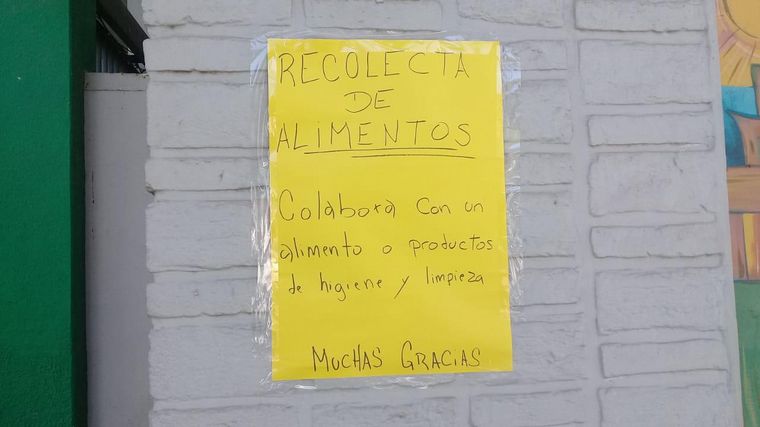 RECOLECTA
DE
ALIMENTOS
Colabora con un
alimento o productos
de higiene y limpieza
MUCHAS GRACIAS